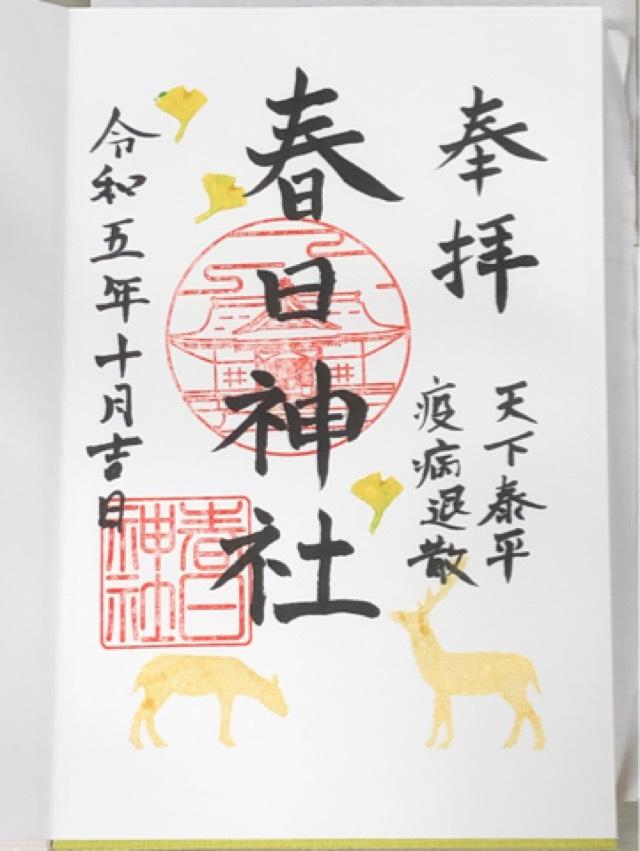 奉拝
天下泰平
疫病退散
春日神社
令和五年十月吉日
春日
神社